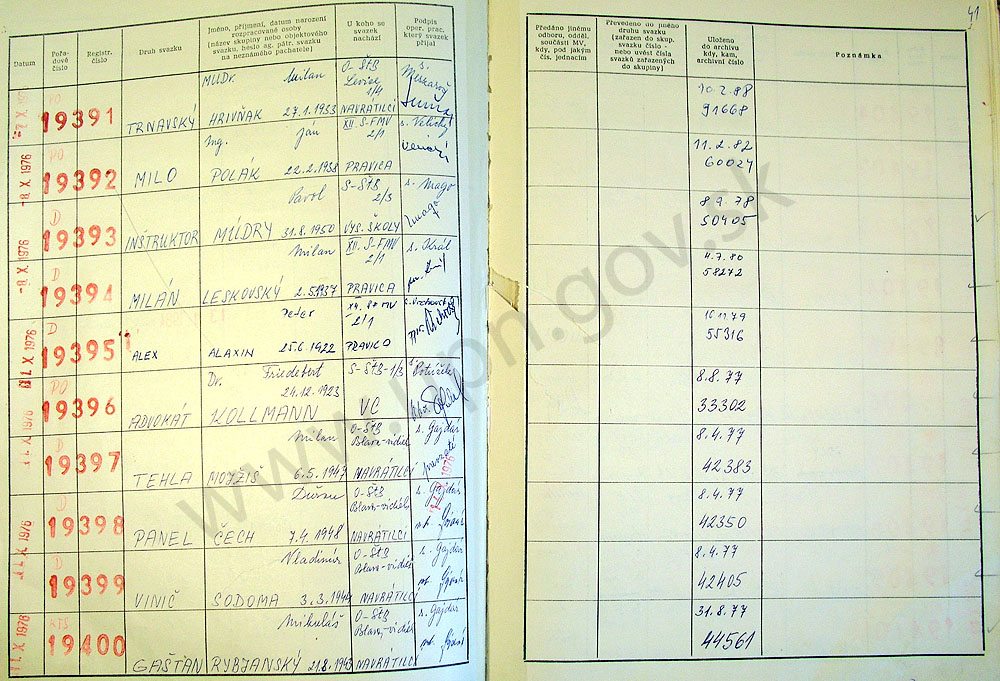 41
Datum
Pořadové číslo
Registr. číslo
Druh svazku
Jméno, příjmení, datum narození
rozpracované osoby
(název skupiny nebo objektového
svazku, heslo ag. pátr. svazku
na neznámého pachatele)
U koho se
svazek
nachází
Podpis
oper. prac.
který svazek
přijal
Předáno jinému
odboru, odděl.
součásti MV,
kdy, pod jakým
čís. jednacím
Převedeno do jiného
druhu svazku
(zařazen do skup.
svazku číslo -
nebo uvést čísla
svazků zařazených
do skupiny)
Uloženo
do archivu
kdy, kam,
archivní číslo
Poznámka
MUDr. Milan O-ŠtB Levice 1/4 s.
PO 19391 TRNAVSKÝ HRIVŇAK 27.1.1933 NAVRÁTILCI
10.2.88
91668
Ing. Ján XII. S-FMV 2/1 s. Velický
8. X. 1976 PO 19392 MILO POLÁK 22.2.1938 PRAVICA
11.2.82
60024
Pavol S-ŠtB 2/3 s. Mago
D 19393 INŠTRUKTOR MÚDRY 31.8.1950 VYS. ŠKOLY
8.9.78
50405
Milan XII. S-FMV 2/1 s. Král
X. 1976 D 19394 MILÁN LESKOVSKÝ 2.5.1937 PRAVICA
4.7.80
58272
Peter 2/1
X. 1976 D 19395 ALEX ALAXIN 25.6.1922 PRAVICO
55316
Dr. Friedebert S-ŠtB-1/3 s.
PO 19396 ADVOKÁT KOLLMANN 24.12.1923 VC
8.8.77
33302
Milan O-ŠtB Blava-vidiek s. Gajdár
X. 1976 D 19397 TEHLA MOJŽIŠ 6.5.1947 NAVRÁTILCI
8.4.77
42383
Dušan O-ŠtB Blava-vidiek s. Gajdár
X. 1976 D 19398 PANEL ČECH 7.4.1948 NAVRÁTILCI
8.4.77
42350
Vladimír O-ŠtB Blava-vidiek s. Gajdár
D 19399 VINIČ SODOMA NAVRÁTILCI
8.4.77
42405
Mikuláš O-ŠtB Blava-vidiek s. Gajdár
X. 1976 KTS 19400 GAŠTAN RYBJANSKÝ 21.8.1943 NAVRÁTILCI
31.8.77
44561
www.upn.gov.sk